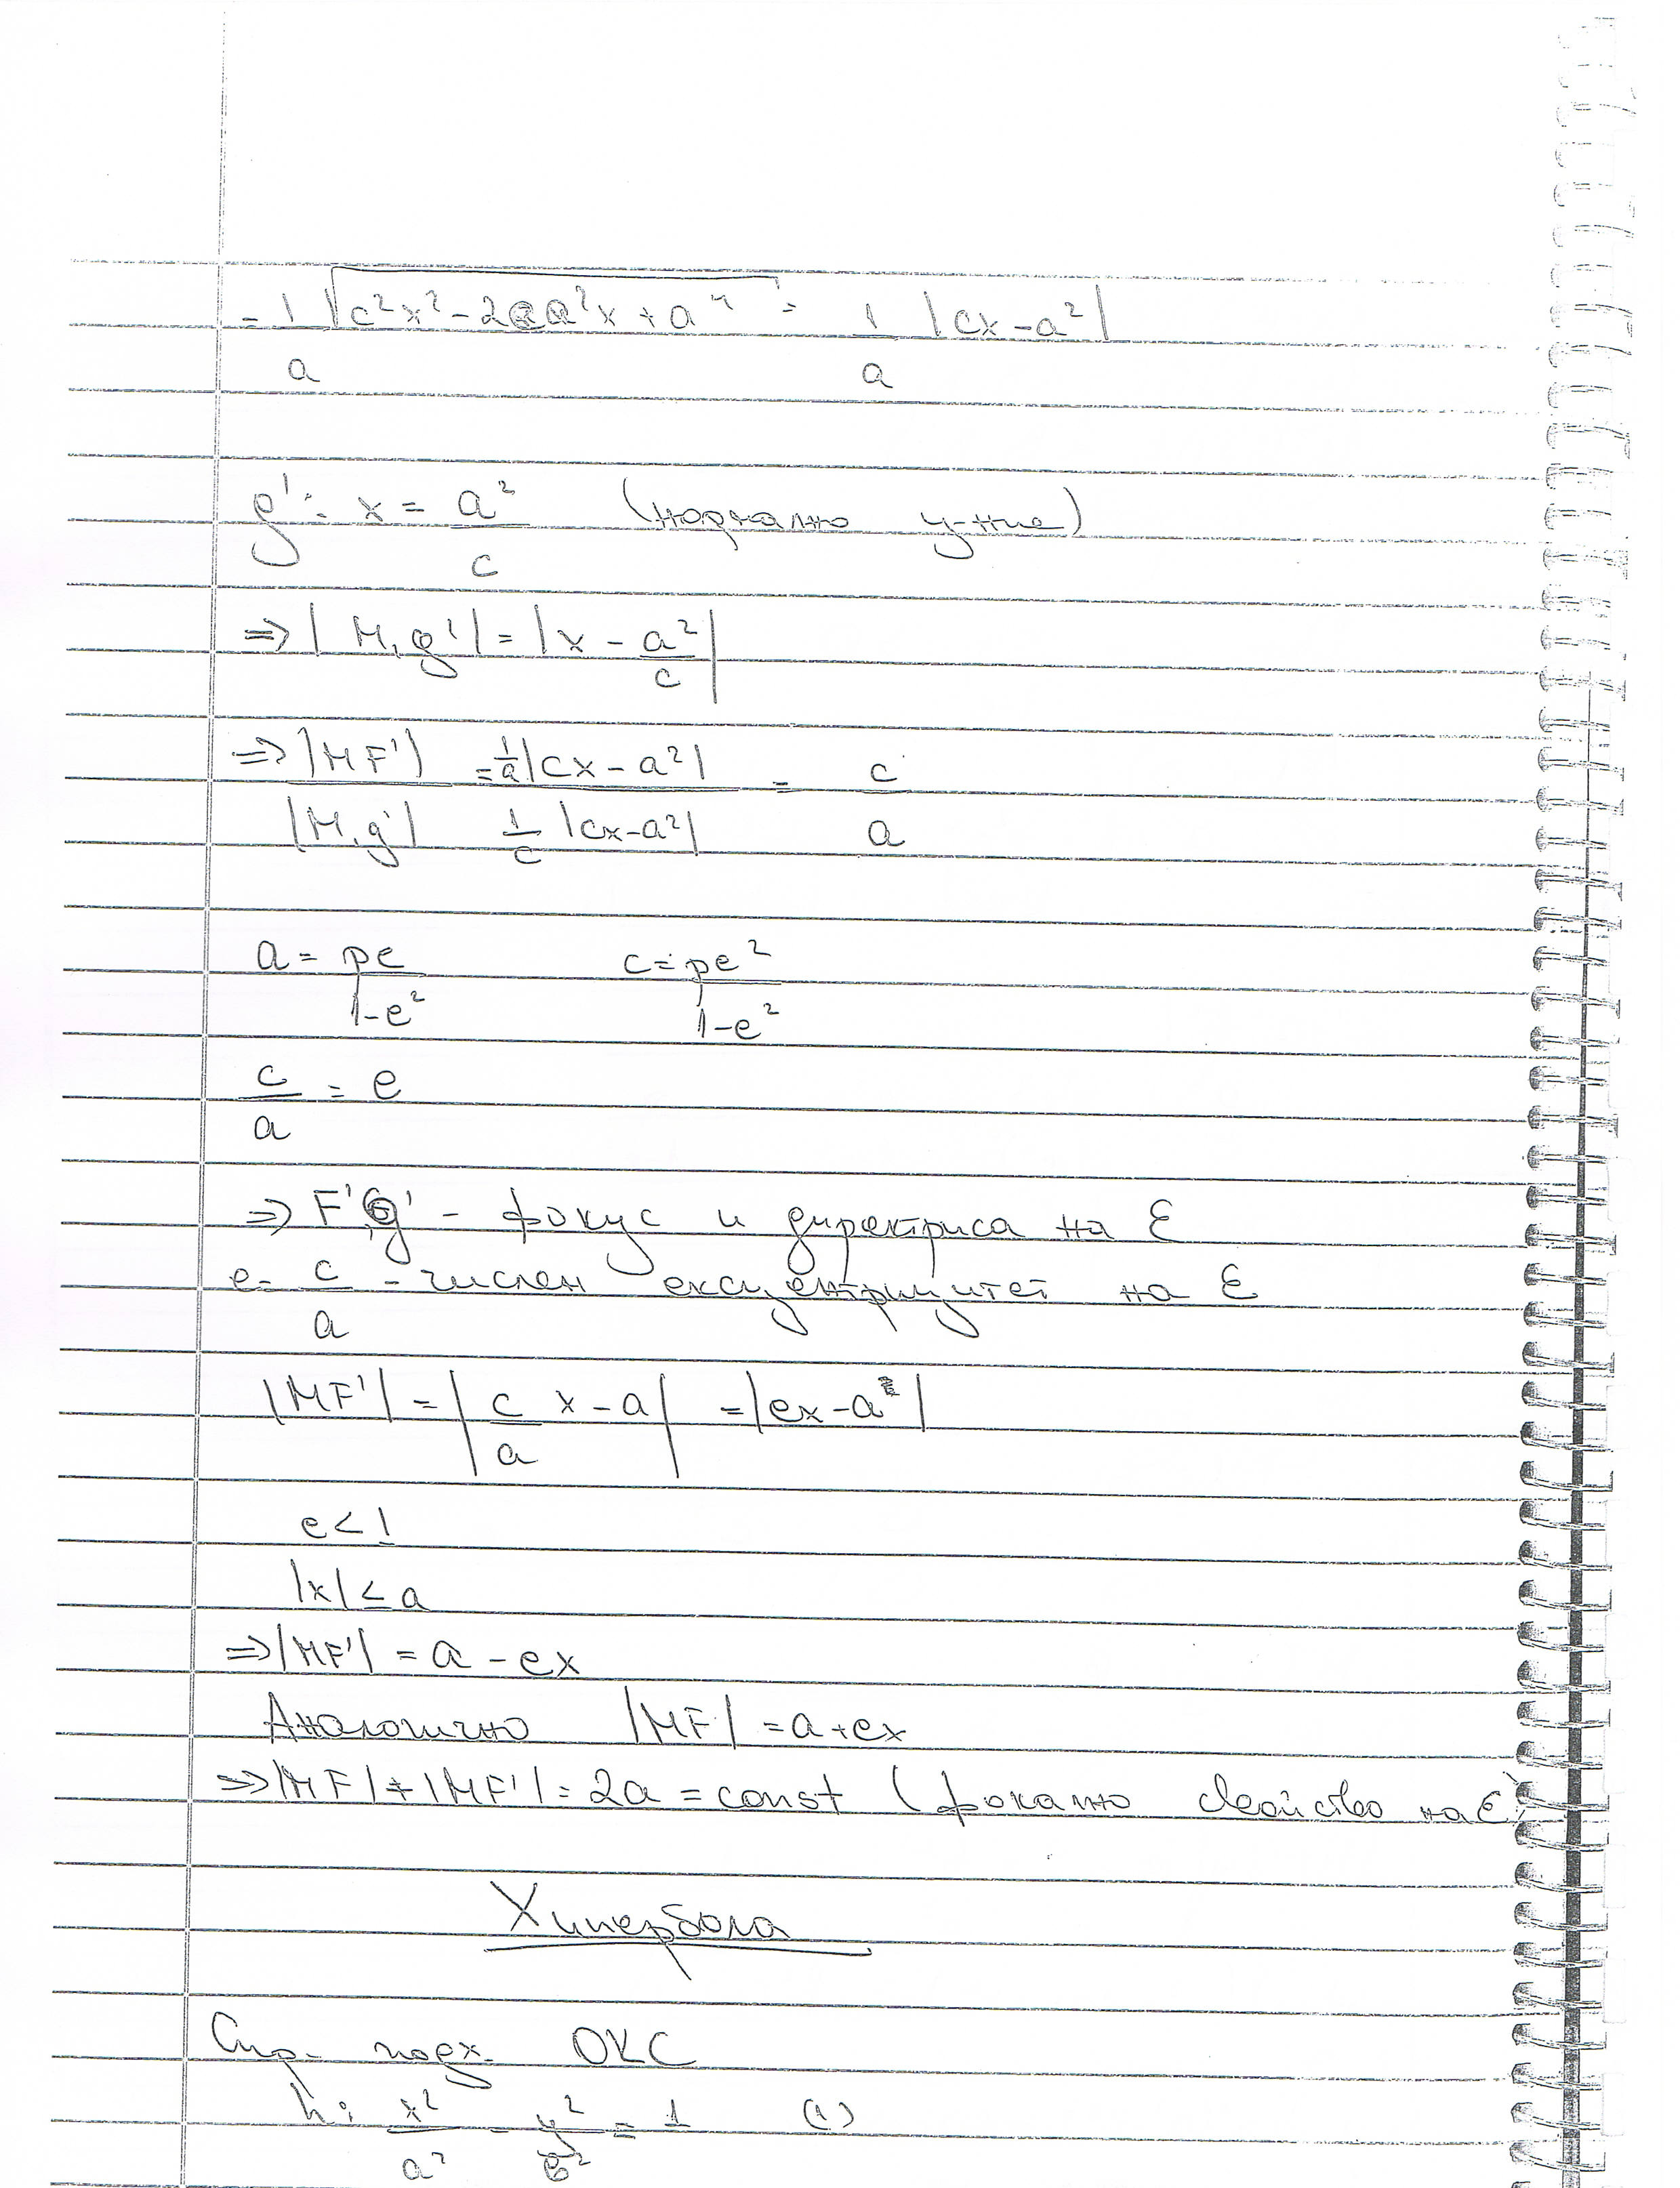 = 1/a √(c²x² - 2ca²x + a⁴) = 1/a |cx - a²|
g': x = a²/c (нормално у-ние)
=> |M, g'| = |x - a²/c|
=> |MF'| / |M, g'| = 1/a |cx - a²| / 1/c |cx - a²| = c/a
a = pe/(1-e²) c = pe²/(1-e²)
c/a = e
=> F', g' - фокус и директриса на Ɛ
e = c/a - числен ексцентрицитет на Ɛ
|MF'| = |c/a x - a| = |ex - a|
e < 1
|x| ≤ a
=> |MF'| = a - ex
Аналогично |MF| = a + ex
=> |MF| + |MF'| = 2a = const (фокално свойство на Ɛ)
Хипербола
Спр. подх. ОКС
h: x²/a² - y²/b² = 1 (1)